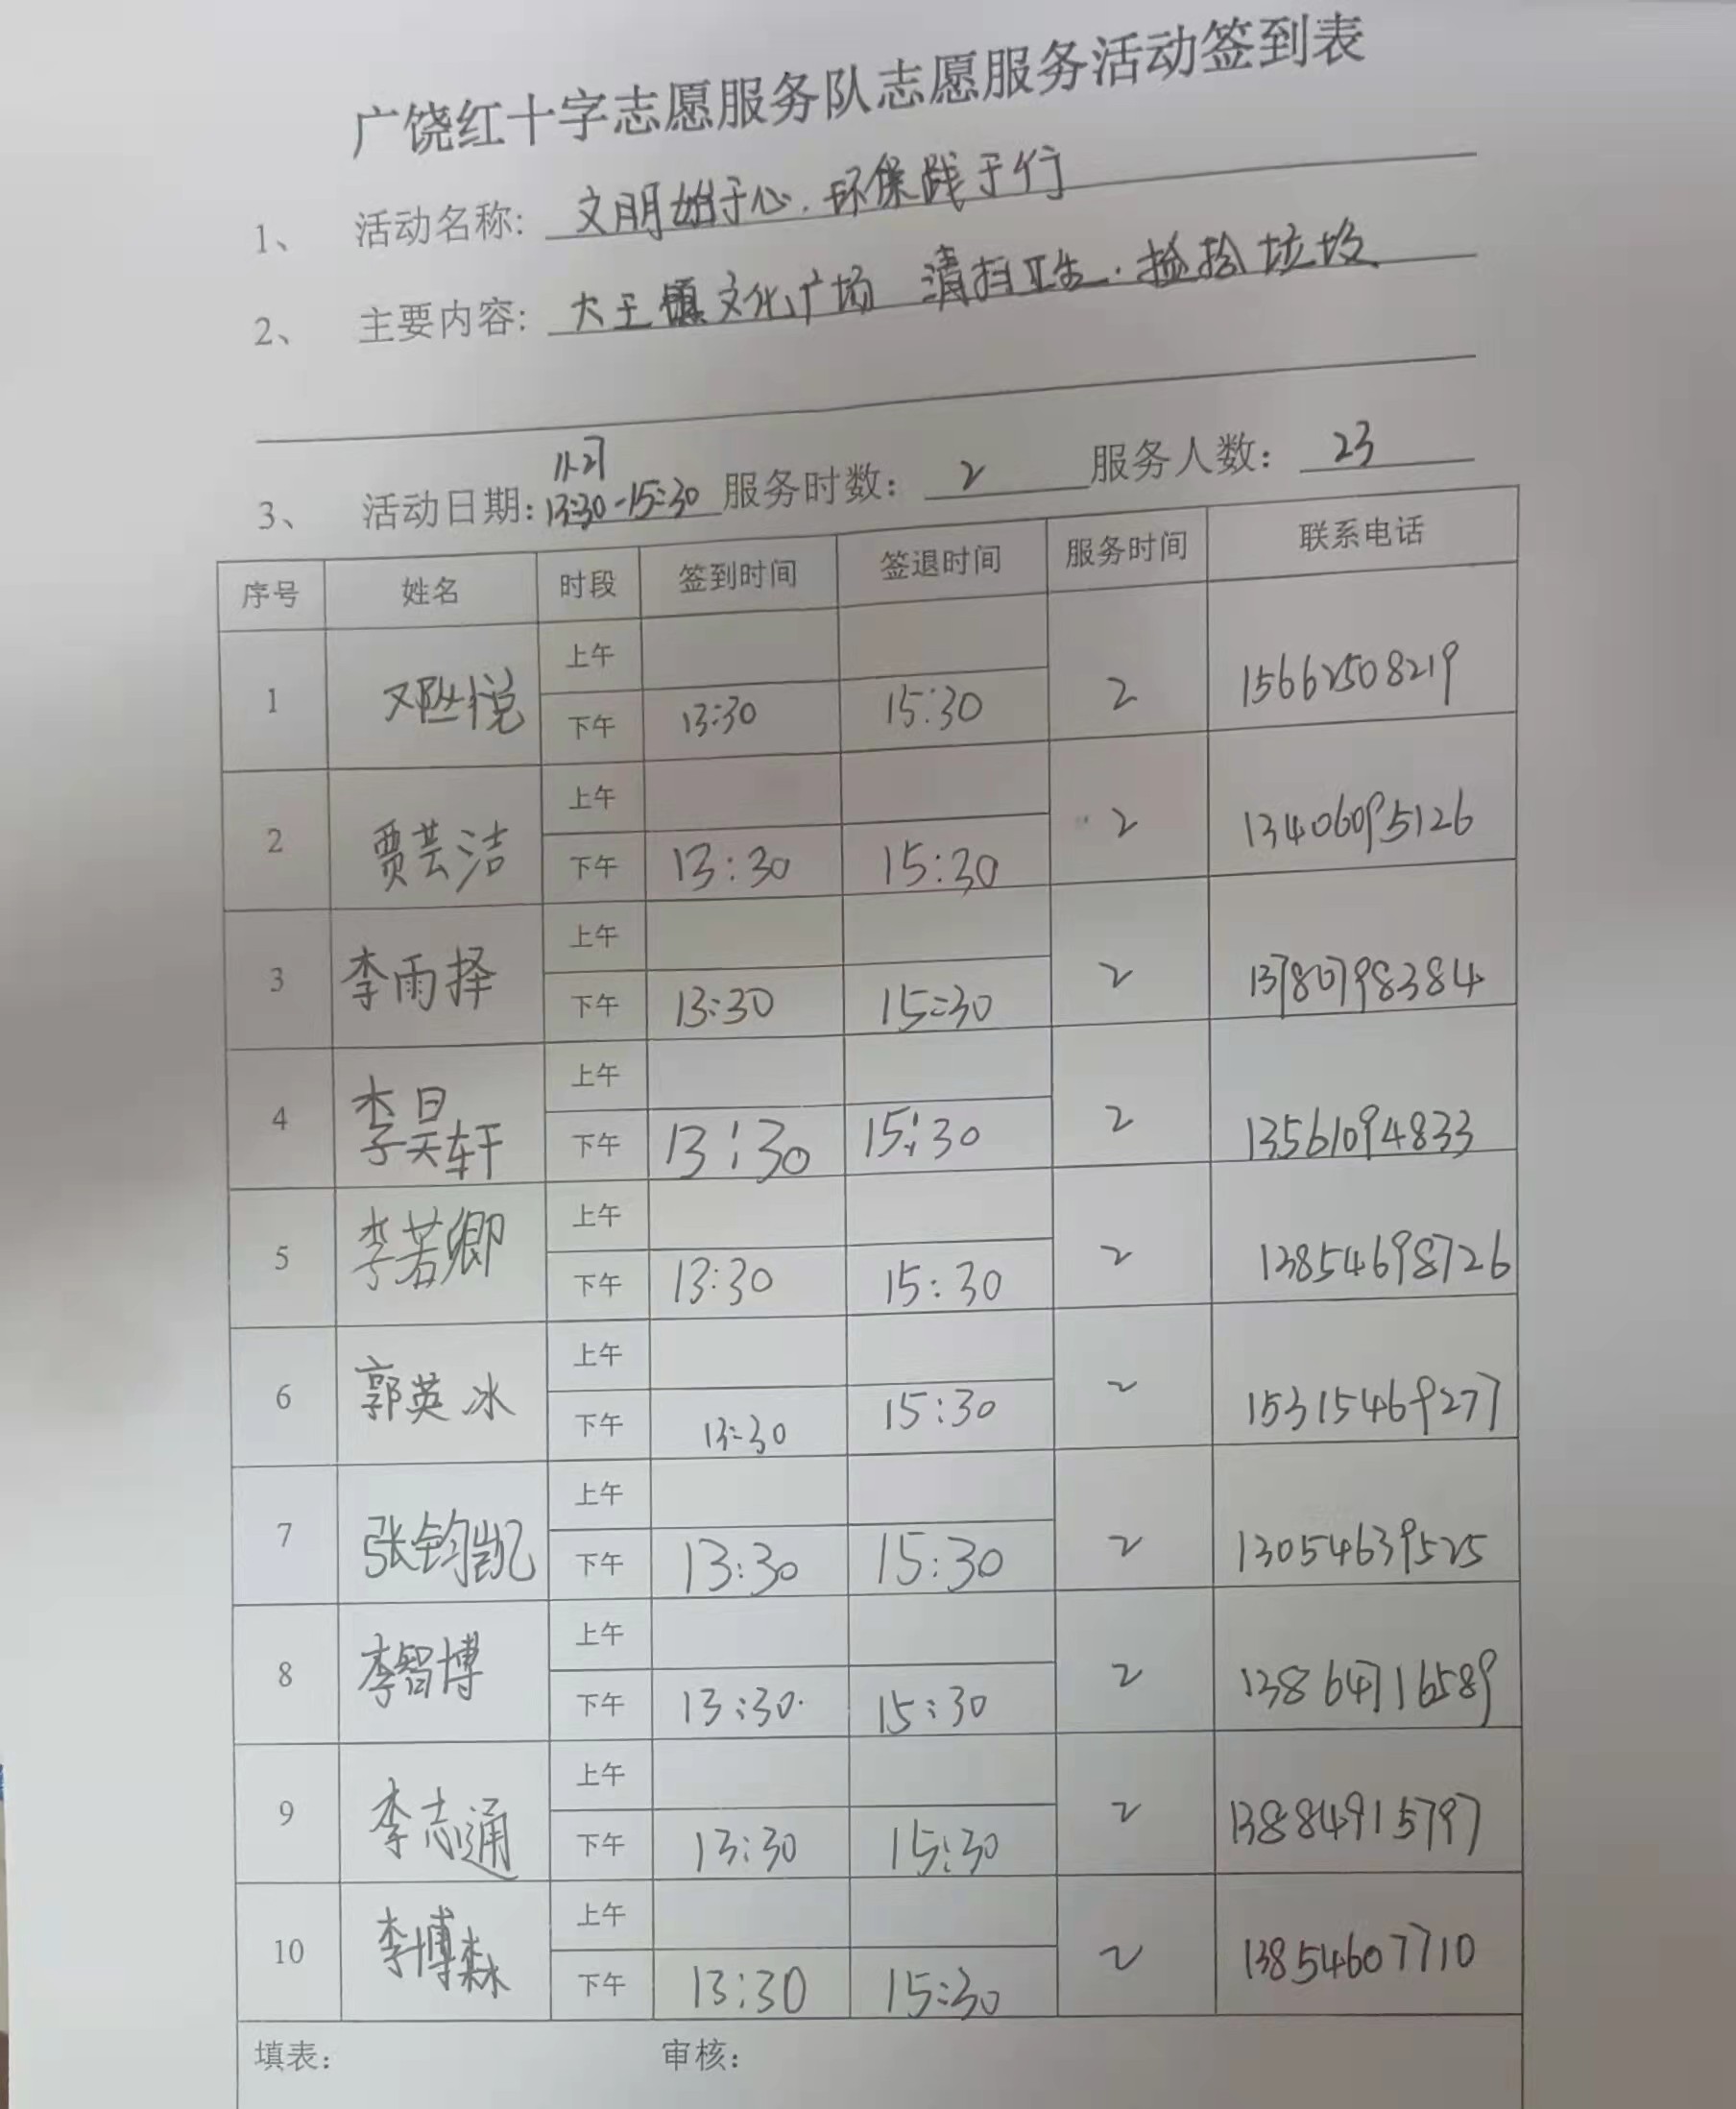 广饶红十字志愿服务队志愿服务活动签到表
1、 活动名称: 文明始于心.环保践于行
2、 主要内容: 大王镇文化广场 清扫卫生.捡拾垃圾
11.27
3、 活动日期: 13:30-15:30 服务时数: 2 服务人数: 23
序号 姓名 时段 签到时间 签退时间 服务时间 联系电话
上午
1 邓悦 2 15662508219
下午 13:30 15:30
上午
2 贾芸洁 2 13406095126
下午 13:30 15:30
上午
3 李雨择 2 13780798384
下午 13:30 15:30
上午
4 李昊轩 2 13561094833
下午 13:30 15:30
上午
5 李若卿 2 13854698726
下午 13:30 15:30
上午
6 郭英冰 2 15315469277
下午 13:30 15:30
上午
7 张钧凯 2 13054639525
下午 13:30 15:30
上午
8 李智博 2 13864716589
下午 13:30 15:30
上午
9 李志通 2 13884915797
下午 13:30 15:30
上午
10 李博森 2 13854607710
下午 13:30 15:30
填表: 审核: